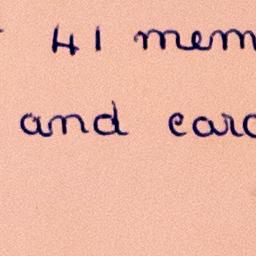 41 mem
and card